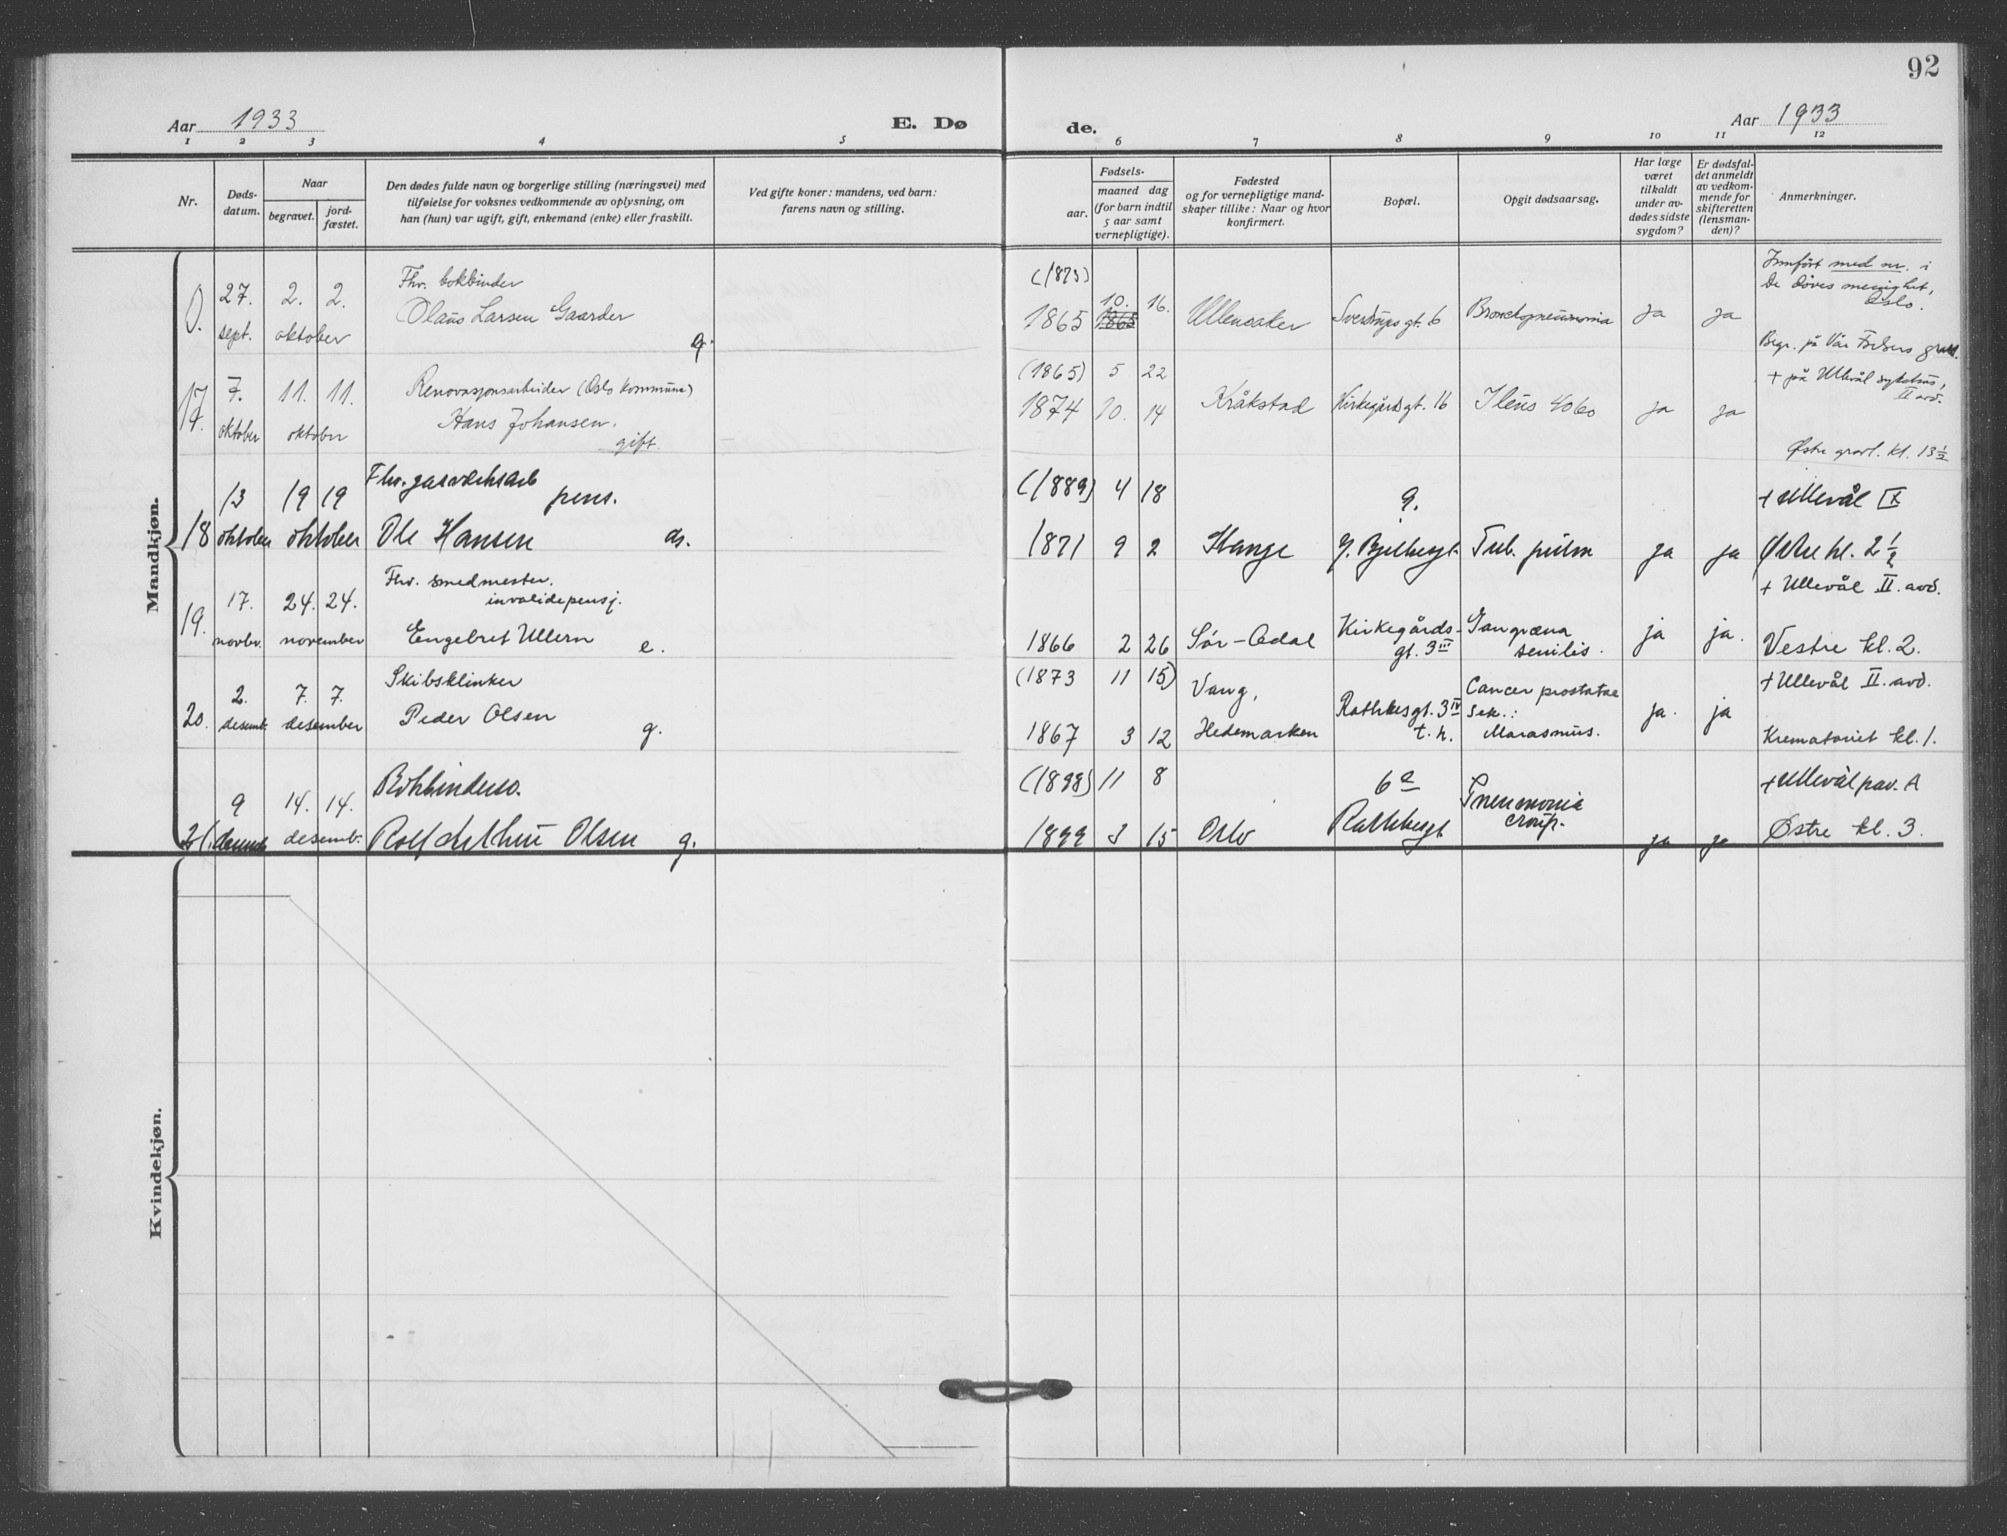 92
Aar 1933
E. Dø de.
Aar 1933
1 2 3 4 5 6 7 8 9 10 11 12
Nr.
Døds-
datum.
Naar
begravet.
jord-
fæstet.
Den dødes fulde navn og borgerlige stilling (næringsvei) med
tilføielse for voksnes vedkommende av oplysning, om
han (hun) var ugift, gift, enkemand (enke) eller fraskilt.
Ved gifte koner: mandens, ved barn:
farens navn og stilling.
Fødsels-
aar.
maaned dag
(for barn indtil
5 aar samt
vernepligtige).
Fødested
og for vernepligtige mand-
skaper tillike: Naar og hvor
konfirmert.
Bopæl.
Opgit dødsaarsag.
Har læge
været
tilkaldt
under av-
dødes sidste
sygdom?
Er dødsfal-
det anmeldt
av vedkom-
mende for
skifteretten
(lensman-
den)?
Anmerkninger.
Mandkjøn.
0. 27. sept. 2. 2. oktober
Fhv. bokbinder
Olaus Larsen Gaarder
g.
(1873)
1865 10. 16. Ullensaker Sverdrups gt. 6 Bronchopneumonia ja ja
Innført med nr. i
De døves menighet,
Oslo.
Begr. på Vår Frelsers gravl.
17. 7. oktober 11. 11. oktober
Renovasjonsarbeider (Oslo kommune)
Hans Johansen.
gift
(1865) 5 22
1874 10. 14 Kråkstad Kirkegårdsgt. 16 Ileus ja ja
+ på Ullevål sykehus,
II avd.
Østre gravl. kl. 13 1/2
18 13 oktober 19 19 oktober
Fhv. gasverksarb
pens.
Ole Hansen
(1889) 4 18
1871 9 2 Stange Tub. pulm ja ja
+ Ullevål IX
Østre kl. 2 1/2
19. 17. novbr. 24. 24. november
Fhv. smedmester.
invalidepensj.
Engebret Ullern e.
1866 2 26 Sør-Odal Kirkegårds-
gt. 3 III
Gangræna
senilis.
ja ja.
+ Ullevål II. avd.
Vestre kl. 2.
20. 2. desemb. 7. 7. desember
Skibsklinker
Peder Olsen
g.
(1873 11 15)
1867 3 12
Vang,
Hedemarken
Rathkesgt. 3 IV
t. h.
Cancer prostatae
Sek.:
Marasmus.
ja. ja
+ Ullevål II. avd.
Krematoriet kl. 1.
21. 9 desemb 14. 14. desemb.
Bokbindersv.
Rolf Arthur Olsen g.
(1898) 11 8
1899 3 15 Oslo
6 a
Rathkesgt
Pneumonia
croup.
ja ja
+ Ullevål pav. A
Østre kl. 3.
Kvindekjøn.